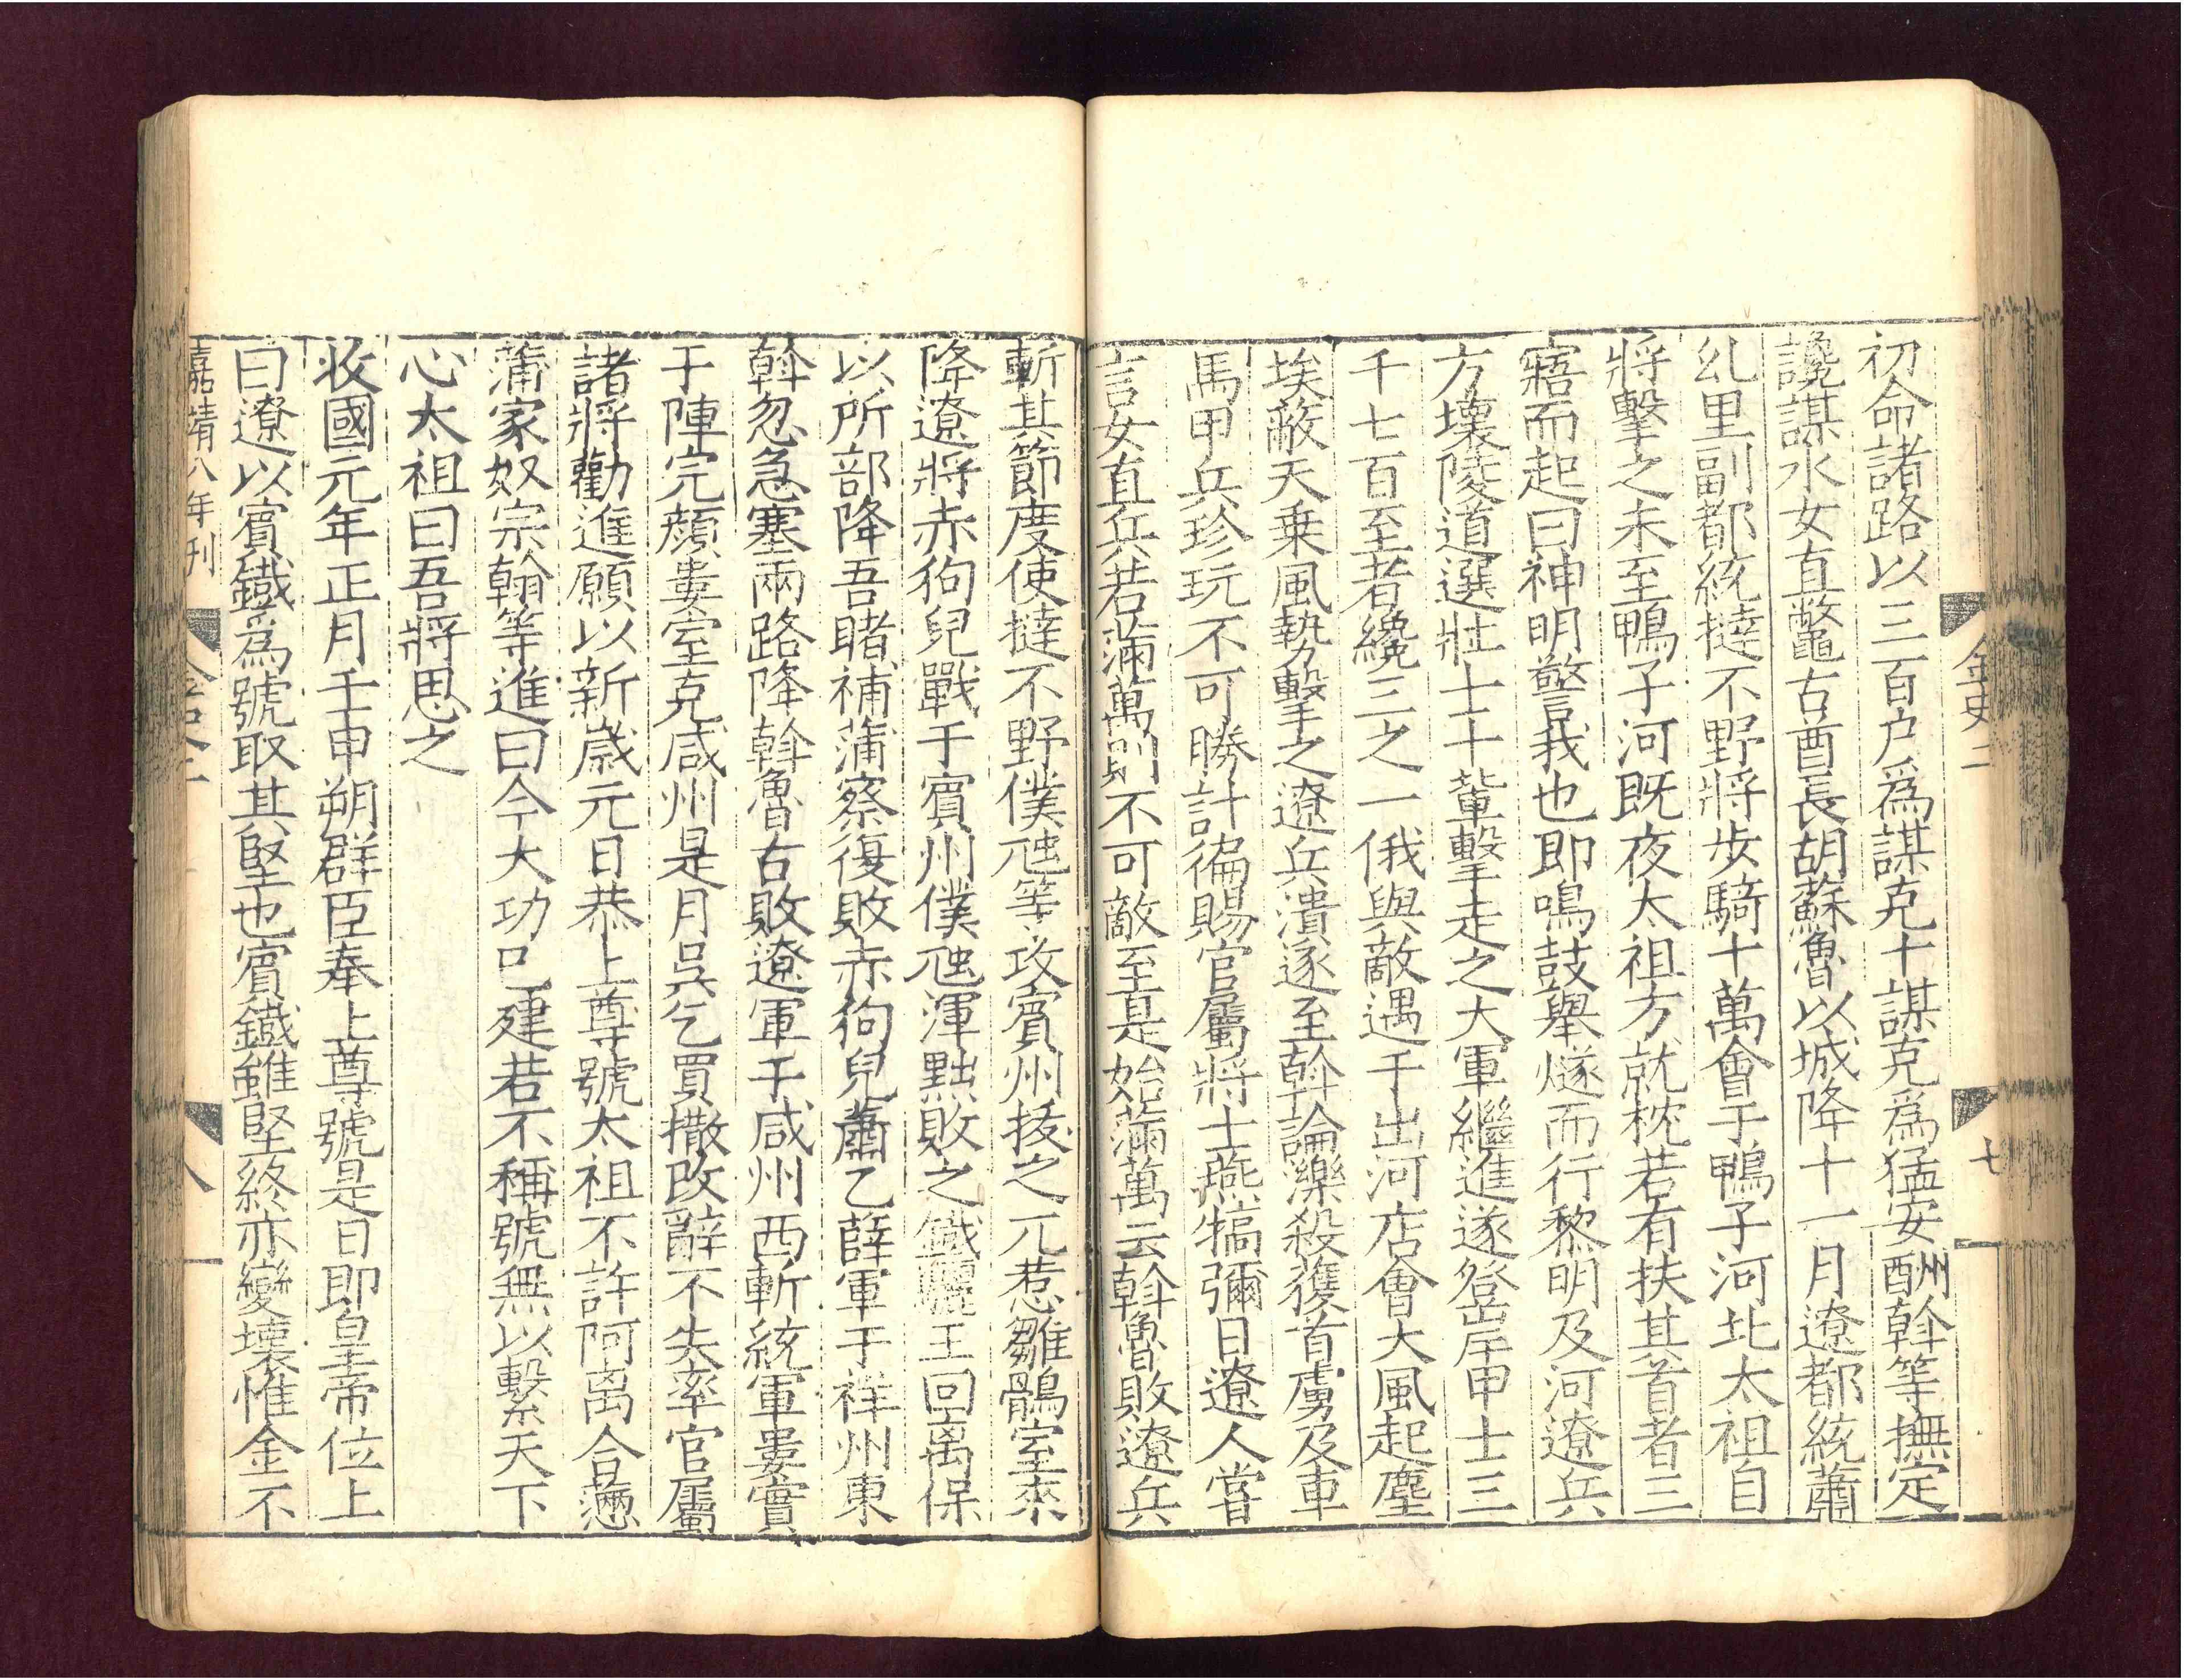 初命諸路以三百户爲謀克十謀克爲猛安酬斡等撫定
讒謀水女直鼈古酋長胡蘇魯以城降十一月遼都統蕭
糺里副都統撻不野將步騎十萬會于鴨子河北太祖自
將擊之未至鴨子河既夜太祖方就枕若有扶其首者三
寤而起曰神明警我也即鳴鼓舉燧而行黎明及河遼兵
方壞陵道選壯士十輩擊走之大軍繼進遂登岸甲士三
千七百至者纔三之一俄與敵遇于出河店會大風起塵
埃蔽天乗風勢擊之遼兵潰逐至斡論濼殺獲首虜及車
馬甲兵珍玩不可勝計徧賜官屬將士燕犒彌日遼人嘗
言女直兵若滿萬則不可敵至是始滿萬云斡魯敗遼兵
斬其節度使撻不野僕虺等攻賔州拔之兀惹雛鶻室來
降遼將赤狗兒戰于賔州僕虺渾黜敗之鐵驪王回离保
以所部降吾睹補蒲察復敗赤狗兒蕭乙薛軍于祥州東
斡忽急塞兩路降斡魯古敗遼軍于咸州西斬統軍婁實
于陣完顔婁室克咸州是月吳乞買撒改辭不失率官屬
諸將勸進願以新歳元日恭上尊號太祖不許阿离合懣
蒲家奴宗翰等進曰今大功已建若不稱號無以繫天下
心太祖曰吾將思之
收國元年正月壬申朔群臣奉上尊號是日即皇帝位上
曰遼以賔鐵爲號取其堅也賔鐵雖堅終亦變壞惟金不
嘉靖八年刊 金史二 八
金史二 七